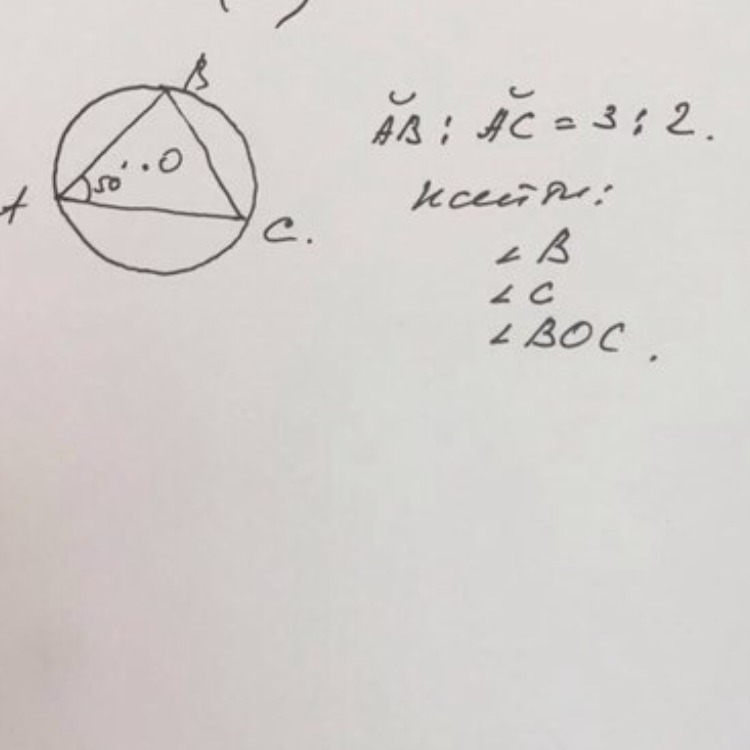 B
A
50°
O
C.
AB : AC = 3 : 2.
Найти:
∠ B
∠ C
∠ BOC.